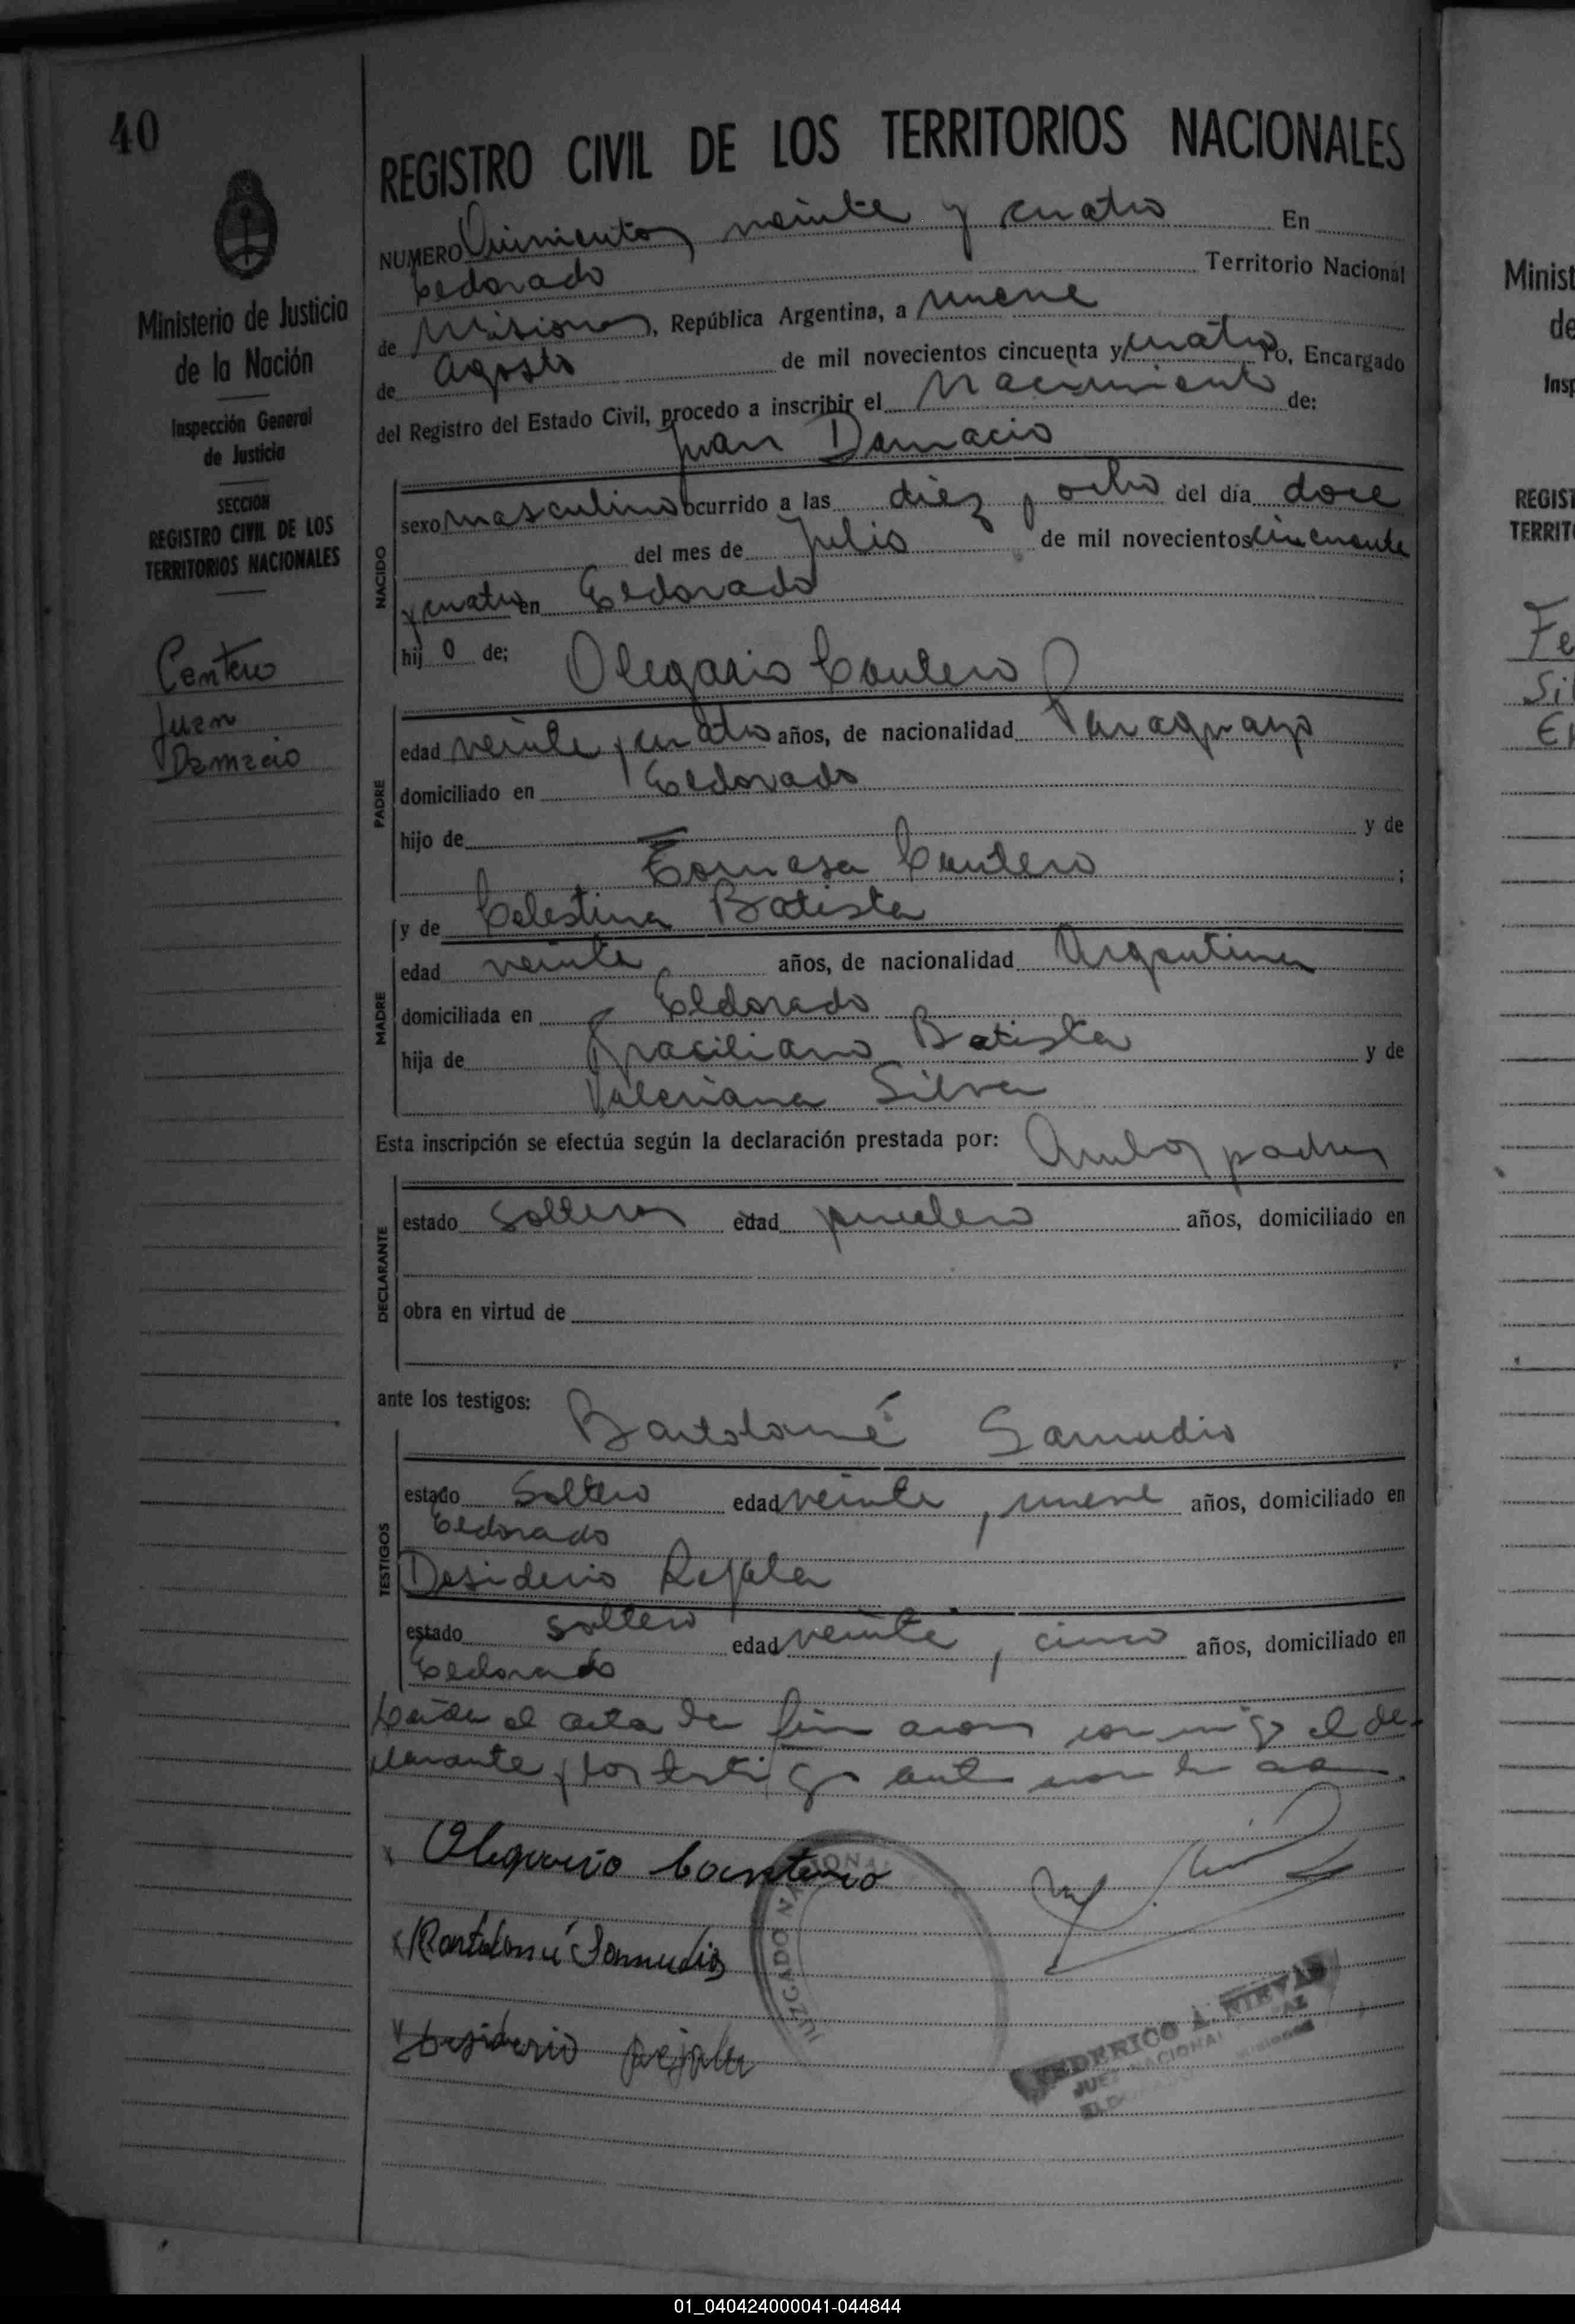 40
Ministerio de Justicia
de la Nación
Inspección General
de Justicia
SECCION
REGISTRO CIVIL DE LOS
TERRITORIOS NACIONALES
Centero
Juan
Damacio
REGISTRO CIVIL DE LOS TERRITORIOS NACIONALES
NUMERO Quinientos veinte y cuatro En
Eldorado Territorio Nacional
de Misiones, República Argentina, a nueve
de Agosto de mil novecientos cincuenta y cuatro Yo, Encargado
del Registro del Estado Civil, procedo a inscribir el Nacimiento de:
Juan Damacio
NACIDO
sexo masculino ocurrido a las diez y ocho del día doce
del mes de Julio de mil novecientos cincuenta
y cuatro en Eldorado
hij o de;
Olegario Cantero
PADRE
edad veinte y cuatro años, de nacionalidad Paraguayo
domiciliado en Eldorado
hijo de y de
Tomasa Cantero ;
y de Celestina Batista
MADRE
edad veinte años, de nacionalidad Argentina
domiciliada en Eldorado
hija de Graciliano Batista y de
Valeriana Silva
Esta inscripción se efectúa según la declaración prestada por: Ambos padres
DECLARANTE
estado solteros edad años, domiciliado en
obra en virtud de
ante los testigos:
Bartolomé Samudio
TESTIGOS
estado Soltero edad veinte y nueve años, domiciliado en
Eldorado
Desiderio Rejala
estado soltero edad veinte y cinco años, domiciliado en
Eldorado
Leida el acta la firmaron conmigo el de-
clarante y los testigos
x Olegario Cantero
x Bartolomé Samudio
x Desiderio Rejala
JUZGADO NACIONAL
FEDERICO A. NIEVAS
JUEZ NACIONAL DE PAZ
ELDORADO Misiones
Minist
de
Insp
REGIST
TERRIT
Fe
Sil
01_040424000041-044844